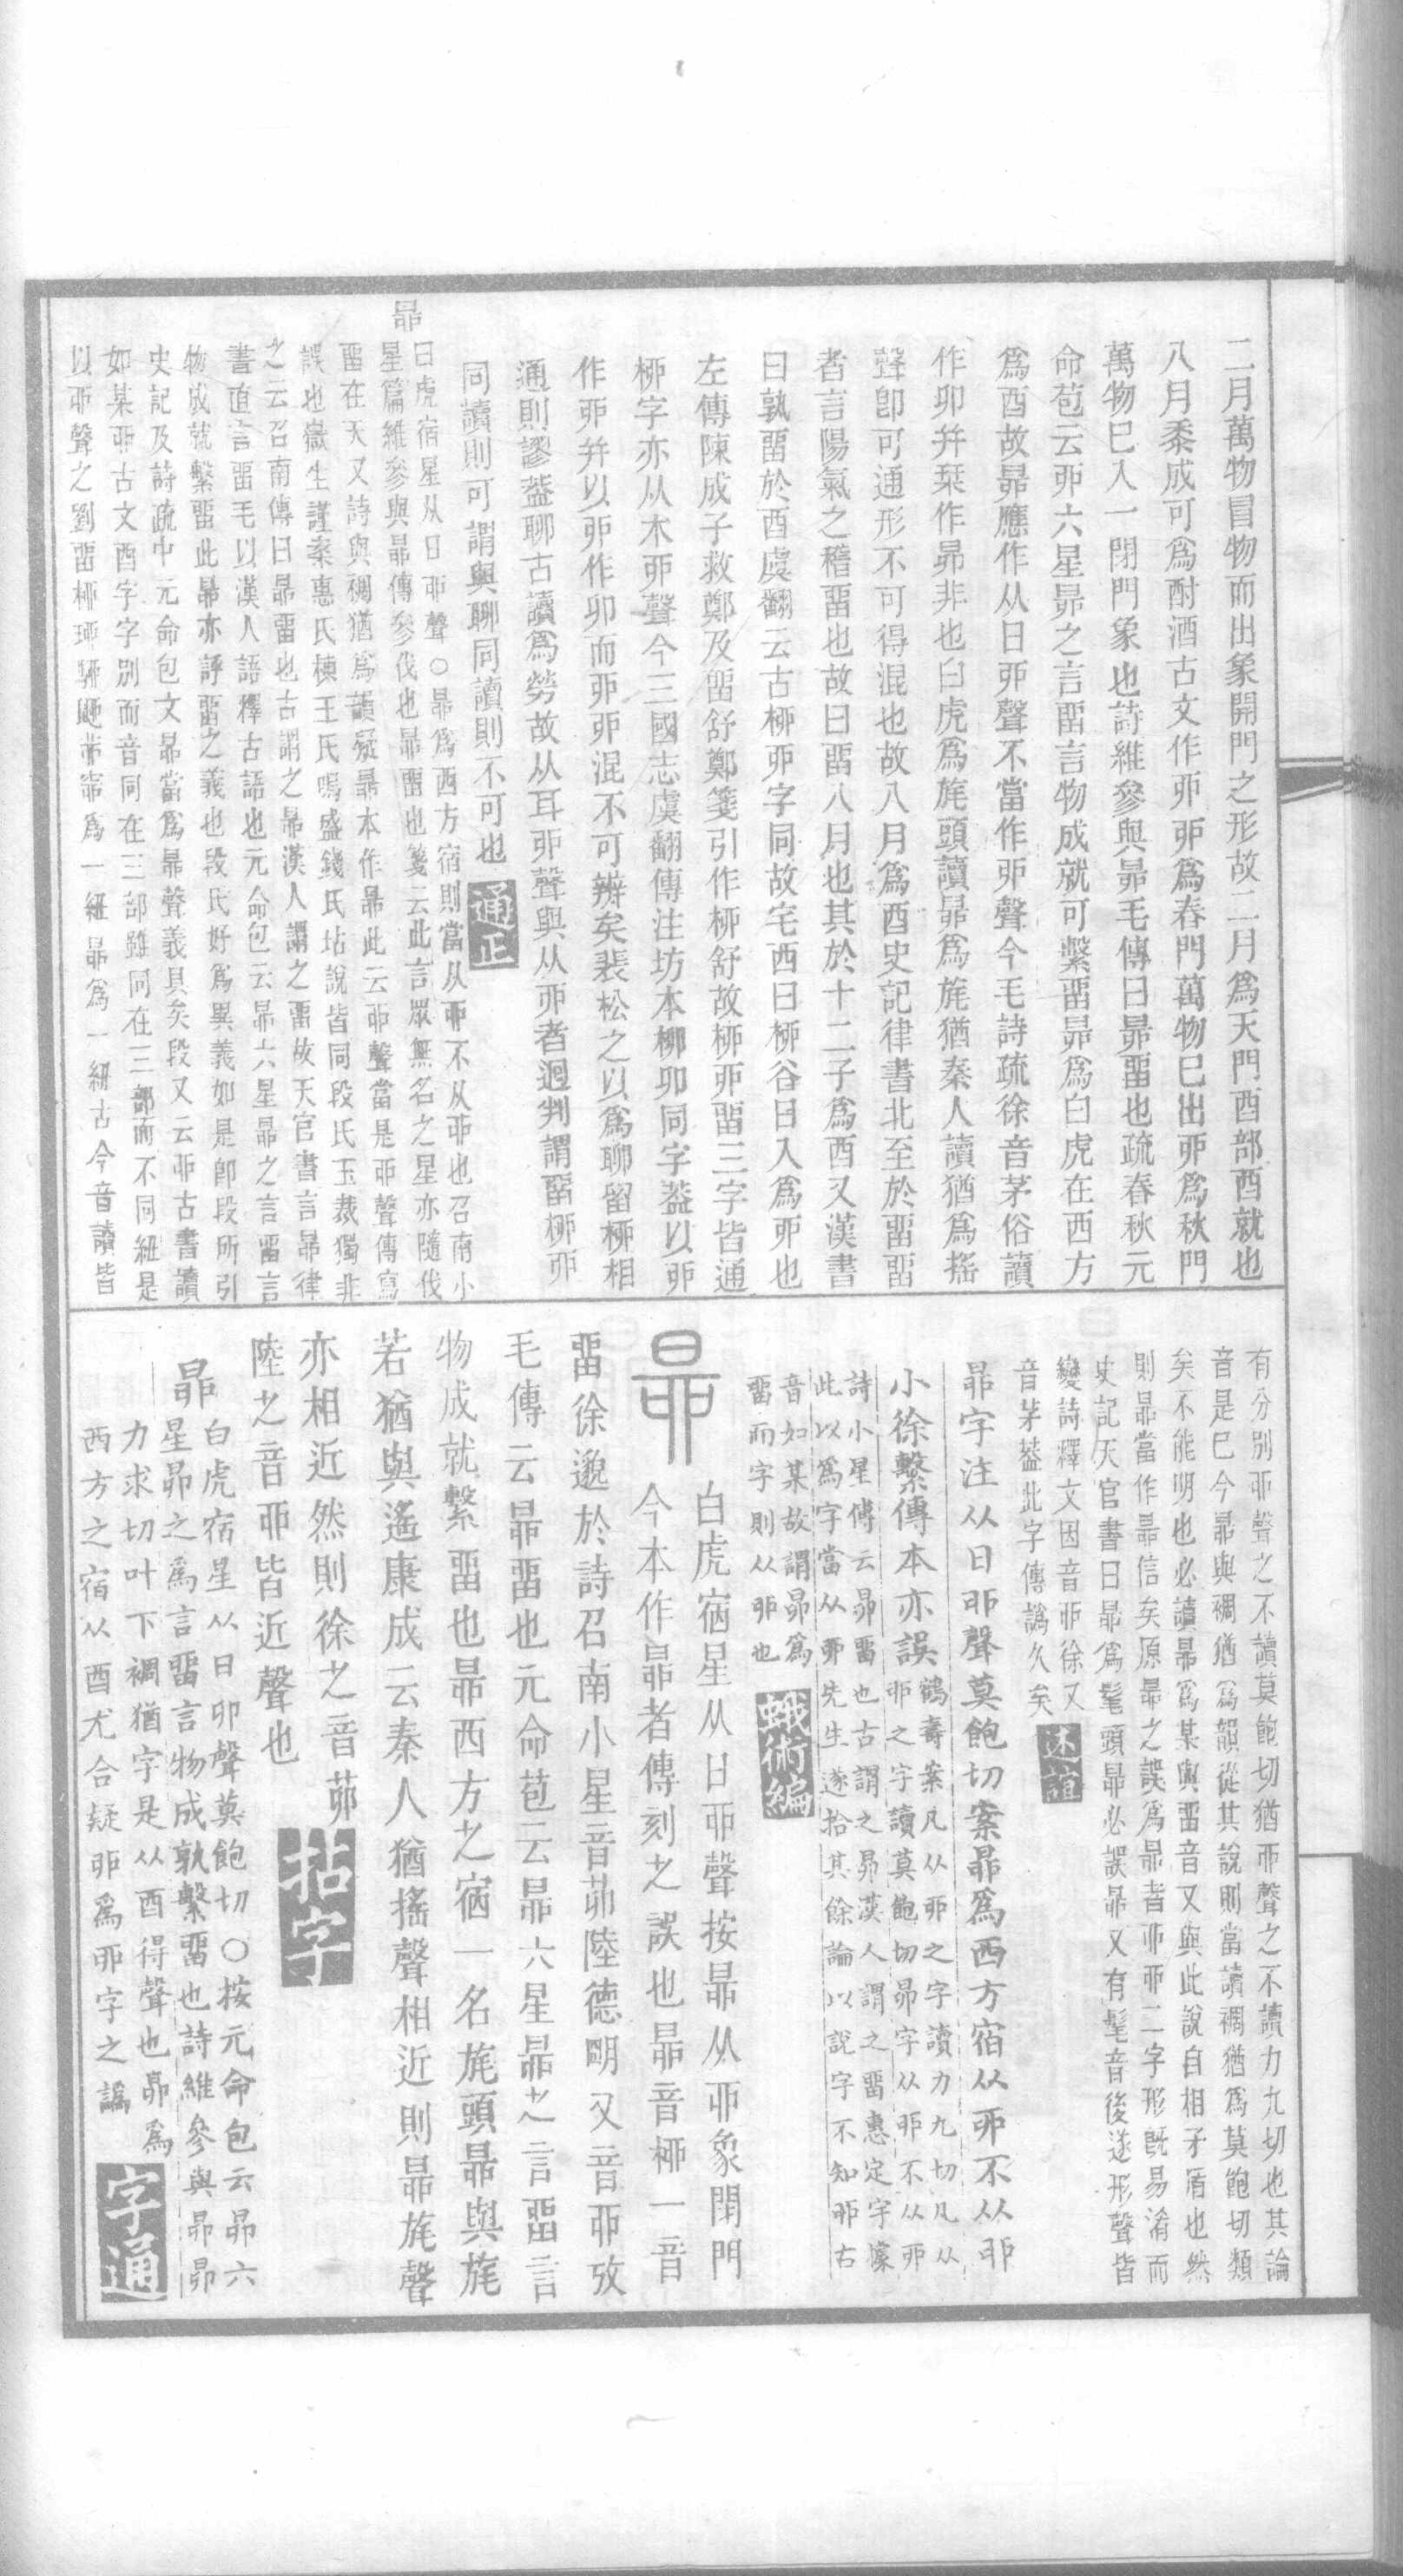 二月萬物冒物而出象開門之形故二月爲天門酉部酉就也
八月黍成可爲酎酒古文作丣丣爲春門萬物已出丣爲秋門
萬物已入一閉門象也詩維參與昴毛傳曰昴畱也疏春秋元
命苞云丣六星昴之言畱言物成就可繫畱昴爲白虎在西方
爲酉故昴應作从日丣聲不當作丣聲今毛詩疏徐音茅俗讀
作卯并栞作昴非也白虎爲旄頭讀昴爲旄猶秦人讀猶爲搖
聲卽可通形不可得混也故八月爲酉史記律書北至於畱畱
者言陽氣之稽畱也故曰畱八月也其於十二子爲酉又漢書
曰孰畱於酉虞翻云古桺丣字同故宅西曰桺谷日入爲丣也
左傳陳成子救鄭及畱舒鄭箋引作桺舒故桺丣畱三字皆通
桺字亦从木丣聲今三國志虞翻傳注坊本柳卯同字葢以丣
作丣并以丣作卯而丣丣混不可辨矣裴松之以爲聊留桺相
通則謬葢聊古讀爲勞故从耳丣聲與从丣者迥判謂畱桺丣
同讀則可謂與聊同讀則不可也 通正
昴 白虎宿星从日丣聲○昴爲西方宿則當从丣不从丣也召南小
星篇維參與昴傳參伐也昴畱也箋云此言眾無名之星亦隨伐
畱在天又詩與裯猶爲韻疑昴本作昴此云丣聲當是丣聲傳寫
誤也嶽生謹案惠氏棟王氏鳴盛錢氏坫說皆同段氏玉裁獨非
之云召南傳曰昴畱也古謂之昴漢人謂之畱故天官書言昴律
書直言畱毛以漢人語釋古語也元命包云昴六星昴之言畱言
物成就繫畱此昴亦評畱之義也段氏好爲異義如是卽段所引
史記及詩疏中元命包文昴當爲昴聲義具矣段又云丣古書讀
如某丣古文酉字字別而音同在三部雖同在三部而不同紐是
以丣聲之劉畱桺珋駵飹帬窌爲一紐昴爲一紐古今音讀皆
有分別丣聲之不讀莫飽切猶丣聲之不讀力九切也其論
音是已今昴與裯猶爲韻從其說則當讀裯猶爲莫飽切類
矣不能明也必讀昴爲某與畱音又與此說自相矛盾也然
則昴當作昴信矣原昴之誤爲昴者丣丣二字形旣易淆而
史記天官書曰昴爲髦頭昴必誤昴又有髦音後遂形聲皆
變詩釋文因音丣徐又
音茅葢此字傳譌久矣 述誼
昴字注从日丣聲莫飽切案昴爲西方宿从丣不从丣
小徐繫傳本亦誤 鶴壽案凡从丣之字讀力九切凡从
丣之字讀莫飽切昴字从丣不从丣
詩小星傳云昴畱也古謂之昴漢人謂之畱惠定宇據
此以爲字當从丣先生遂拾其餘論以說字不知丣古
音如某故謂昴爲
畱而字則从丣也 蛾術編
昴 白虎宿星从日丣聲按昴从丣象閉門
今本作昴者傳刻之誤也昴音桺一音
畱徐邈於詩召南小星音茆陸德明又音丣攷
毛傳云昴畱也元命苞云昴六星昴之言畱言
物成就繫畱也昴西方之宿一名旄頭昴與旄
若猶與遙康成云秦人猶搖聲相近則昴旄聲
亦相近然則徐之音茆
陸之音丣皆近聲也 拈字
昴 白虎宿星从日卯聲莫飽切○按元命包云昴六
星昴之爲言畱言物成孰繫畱也詩維參與昴昴
力求切叶下裯猶字是从酉得聲也昴爲
西方之宿从酉尤合疑丣爲丣字之譌 字通